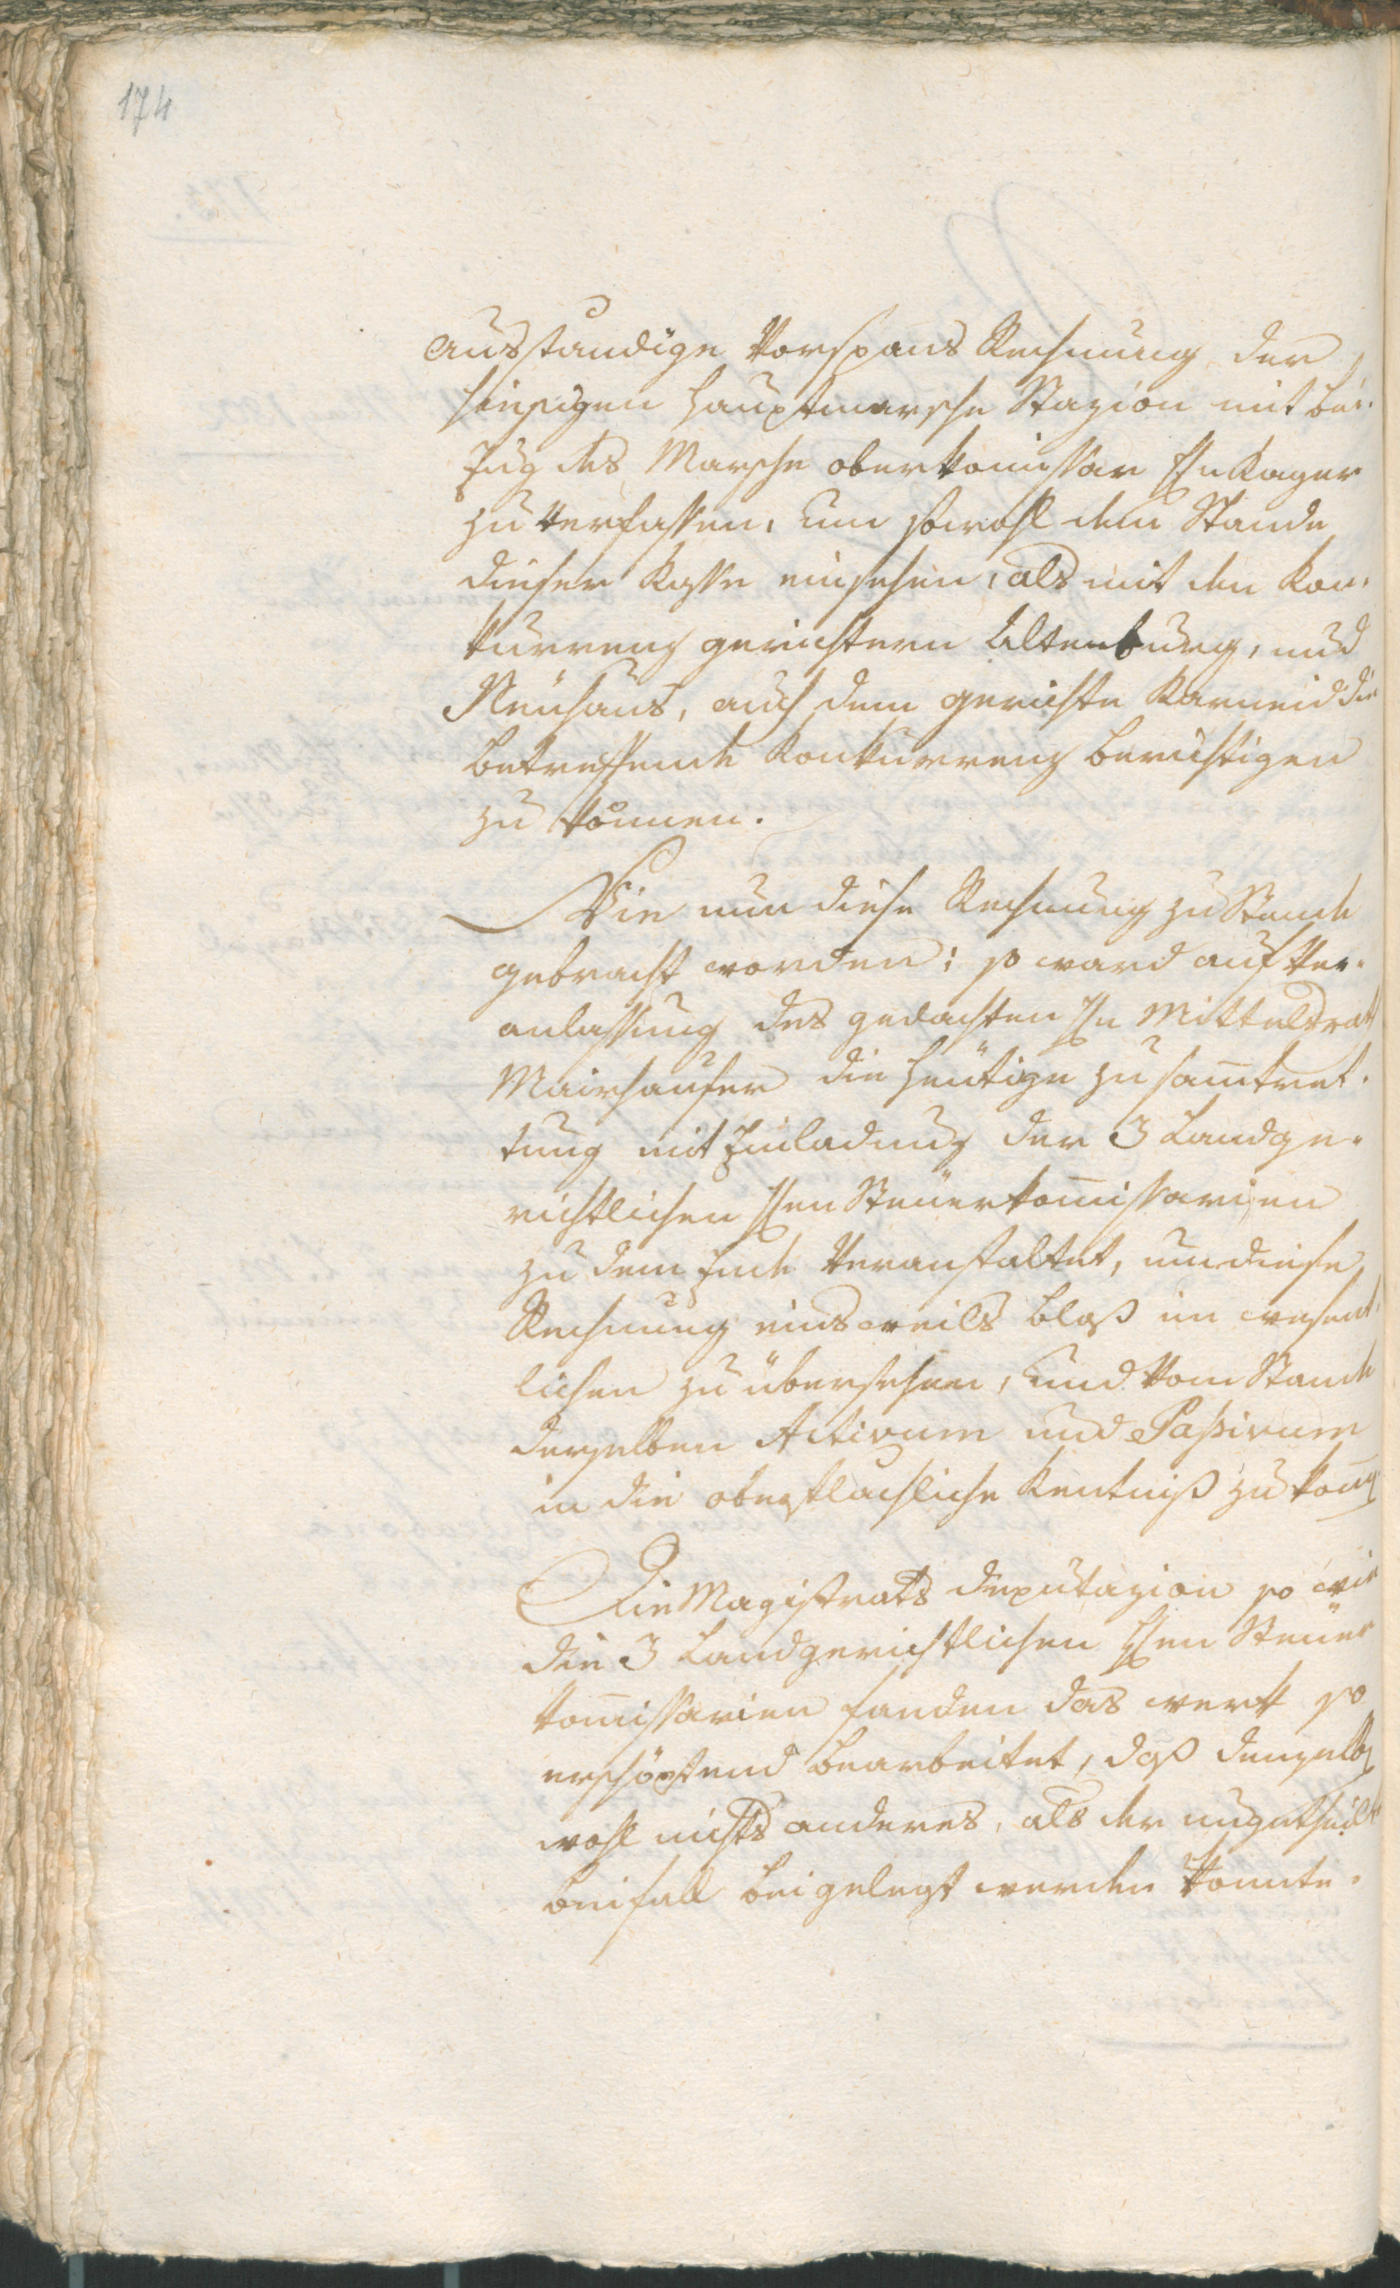 174
ausständige Vorspans Rechnung der
hiesigen Hauptmarsche Stazion mit bei¬
zug des Marsche oberkomissar Hn Kager
zu verfassen, um sowohl dem Stande
dieser Kasse einsehen, als mit den Kon¬
kurrenz gerichtern Altenburg, und
Neuhaus, auch dem gerichte Karneid die
betreffende Konkurrenz berichtigen
zu können.
Wie nun diese Rechnung zu Stande
gebracht worden; so ward auf Ver¬
anlassung des gedachten Hn Mittelsrat
Mairhauser die heutige zusam̅tret¬
tung mit Einladung der 3 Landge¬
richtlichen Hen Steuerkom̅issarien
zu dem Ende Veranstaltet, um diese
Rechnung einsweils bloß im wesent¬
lichen zu übersehen, und vom Stande
derselben Activum und Passivum
in die oberflächliche Kentniß zu kom̅en
Die Magistrats Deputazion so wie
die 3 Landgerichtlichen Hen Steuer
kom̅issarien fanden das werk so
erschöpfend bearbeitet, daß demselben
wohl nichts anderes, als der ungetheilte
beifall beigelegt werden konnte.